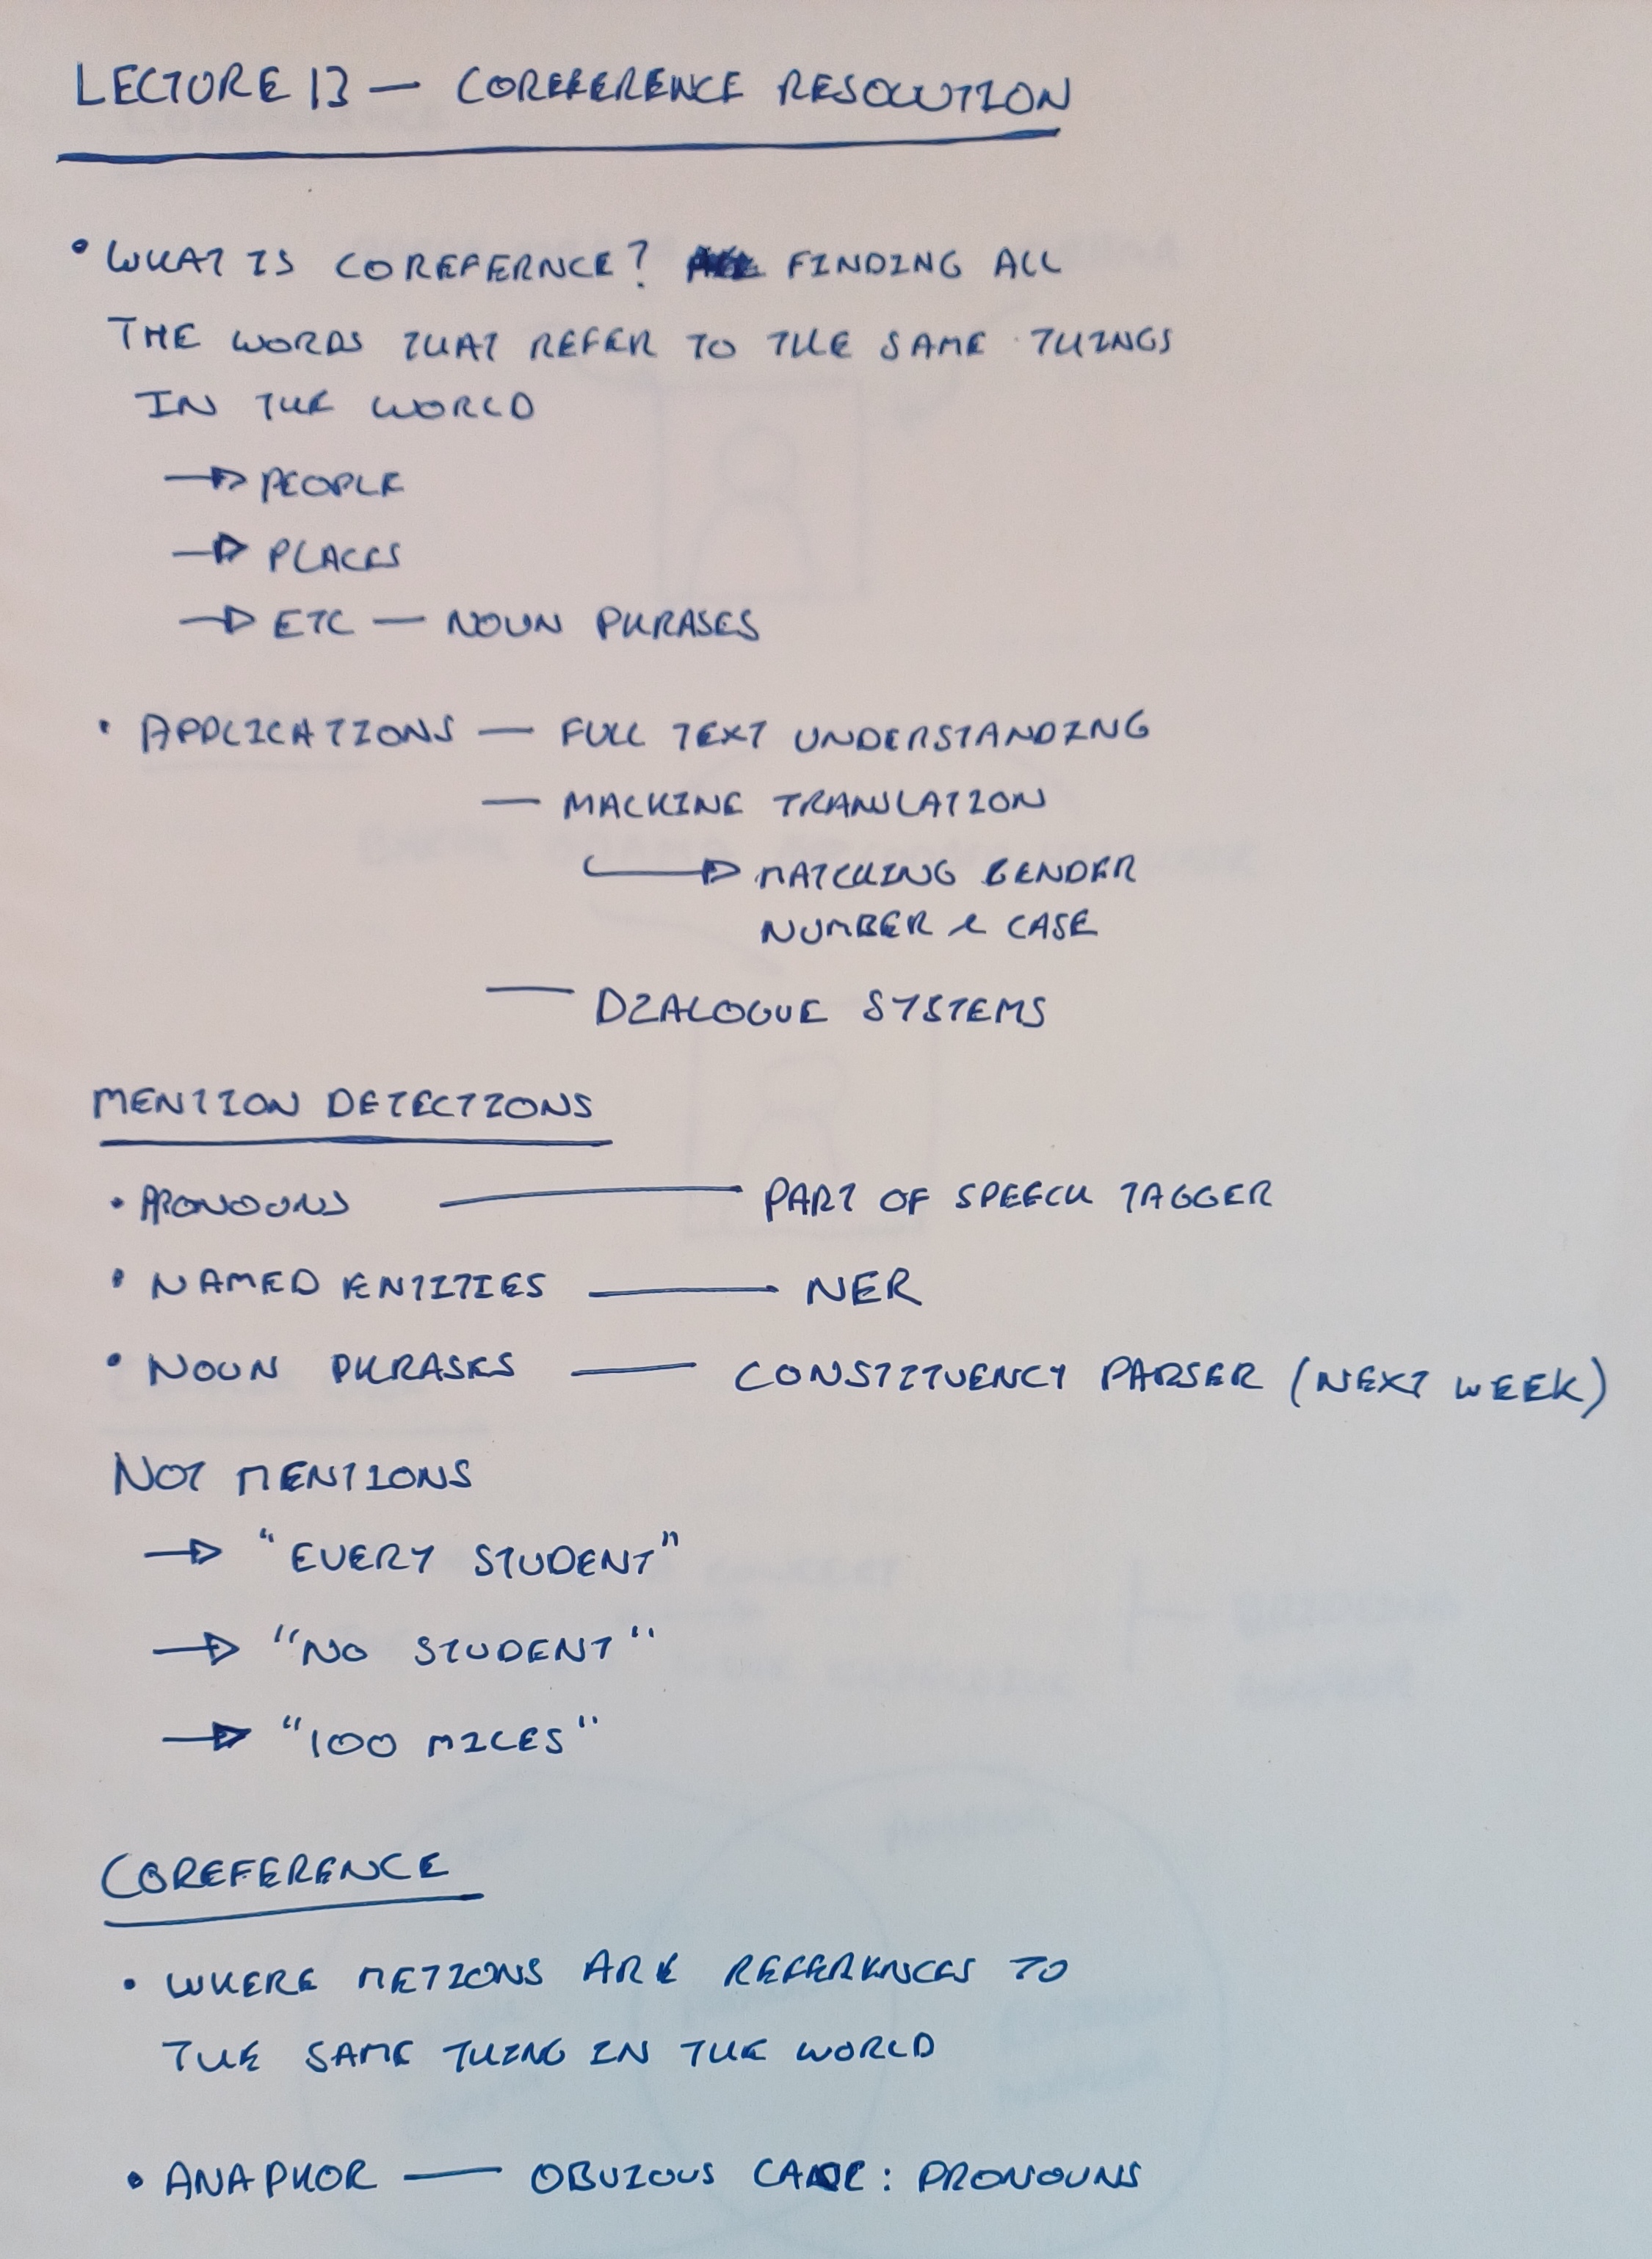 LECTURE 13 — COREFERENCE RESOLUTION
• WHAT IS COREFERNCE? FINDING ALL
THE WORDS THAT REFER TO THE SAME THINGS
IN THE WORLD
→ PEOPLE
→ PLACES
→ ETC — NOUN PHRASES
• APPLICATIONS — FULL TEXT UNDERSTANDING
— MACHINE TRANSLATION
→ MATCHING GENDER
NUMBER & CASE
— DIALOGUE SYSTEMS
MENTION DETECTIONS
• PRONOUNS — PART OF SPEECH TAGGER
• NAMED ENTITIES — NER
• NOUN PHRASES — CONSTITUENCY PARSER (NEXT WEEK)
NOT MENTIONS
→ "EVERY STUDENT"
→ "NO STUDENT"
→ "100 MILES"
COREFERENCE
• WHERE METIONS ARE REFERENCES TO
THE SAME THING IN THE WORLD
• ANAPHOR — OBVIOUS CASE: PRONOUNS